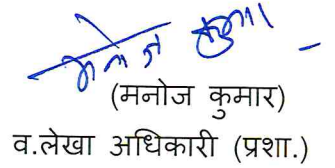 मनोज कुमार
(मनोज कुमार)
व.लेखा अधिकारी (प्रशा.)